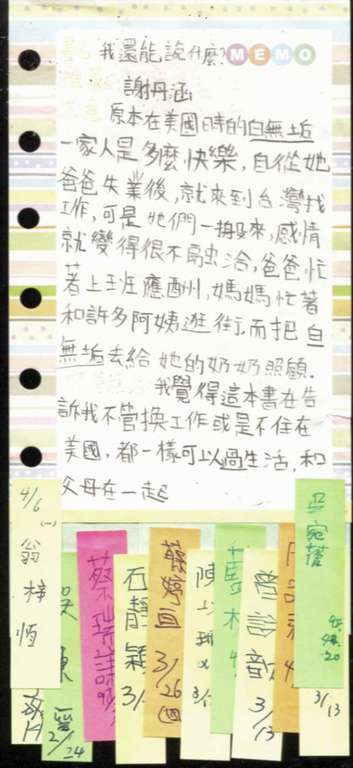 我還能說什麼? MEMO
謝丹涵
原本在美國時的白無垢
一家人是多麼快樂,自從她
爸爸失業後,就來到台灣找
工作,可是她們一搬來,感情
就變得很不融洽,爸爸忙
著上班應酬,媽媽忙著
和許多阿姨逛街而把白
無垢去給她的奶奶照顧.
我覺得這本書在告
訴我不管換工作或是不住在
美國,都一樣可以過生活,和
父母在一起
4/6
(一)
翁梓恆
2/24
蔡瑞
石靜穎
3/
3/26
(四)
陳
3/
曾詩歆
3/13
3/13